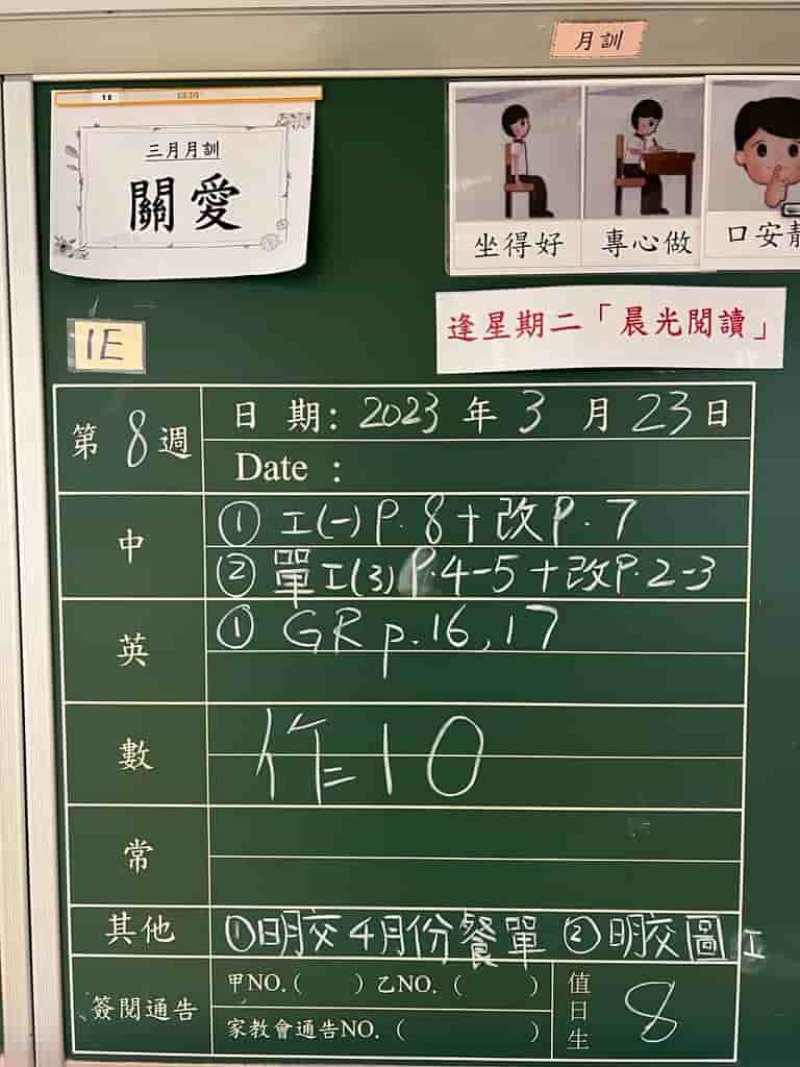 月訓
三月月訓
關愛
坐得好 專心做 口安靜
1E
逢星期二「晨光閱讀」
第8週 日期：2023年3月23日
Date :
中 ① 工(一) P.8+改P.7
② 單工(3) P.4-5+改P.2-3
英 ① GR p.16,17
數 作10
常
其他 ①明交4月份餐單 ②明交圖工
簽閱通告 甲NO.( ) 乙NO.( ) 值日生 8
家教會通告NO.( )